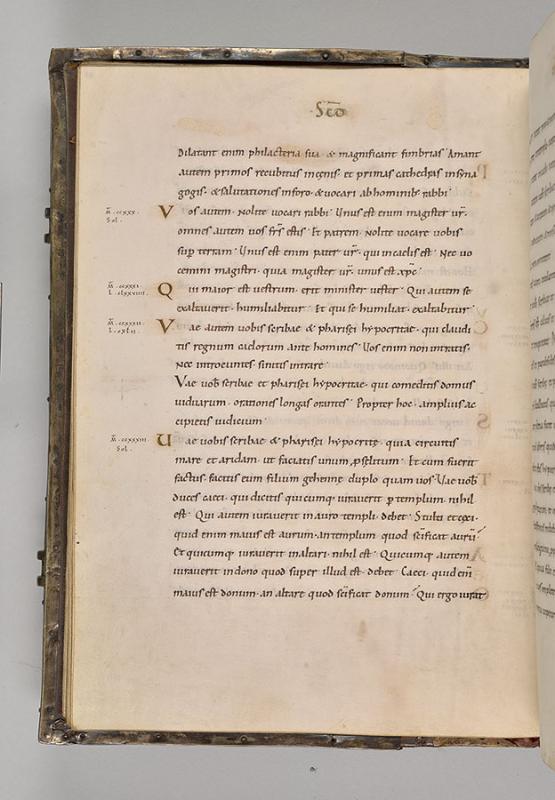 Scđo
Dilatant enim philacteria sua · & magnificant fimbrias · Amant
autem primos recubitus incenis · et primas cathedras insyna
gogis · & salutationes inforo · & uocari abhominib; rabbi ·
Vos autem · Nolite uocari rabbi · Unus est enim magister ur̄ ·
omnes autem uos fr̄s estis · Et patrem · Nolite uocare uobis
sup terram · Unus est enim pater ur̄ · qui incaelis est · Nec uo
cemini magistri · quia magister ur̄ · unus est xp̄c ·
Qui maior est uestrum · erit minister uester · Qui autem se
exaltauerit · humiliabitur · Et qui se humiliat · exaltabitur ·
Vae autem uobis scribae & pharisei hypocritae · qui claudi
tis regnum caelorum ante homines · Uos enim non intratis ·
Nec introeuntes · sinitis intrare ·
Vae uob̄ scribae et pharisei hypocritae · qui comeditis domus
uiduarum · orationes longas orantes · Propter hoc · amplius ac
cipietis iudicium ·
Uae uobis scribae & pharisei hypocritę · quia circuitis
mare et aridam · ut faciatis unum p̱selitum · Et cum fuerit
factus · facitis eum filium gehennę duplo quam uos · Uae uob̄
duces caeci · qui dicitis quicumq; iurauerit p̱ templum · nihil
est · Qui autem iurauerit inauro templi · debet · Stulti et cęci ·
quid enim maius est aurum · an templum quod sc̄ificat aurū ·
Et quicumq; iurauerit inaltari · nihil est · Quicumq; autem
iurauerit indono quod super illud est · debet · Caeci · quid enī
maius est donum · an altare quod sc̄ificat donum · Qui ergo iurat